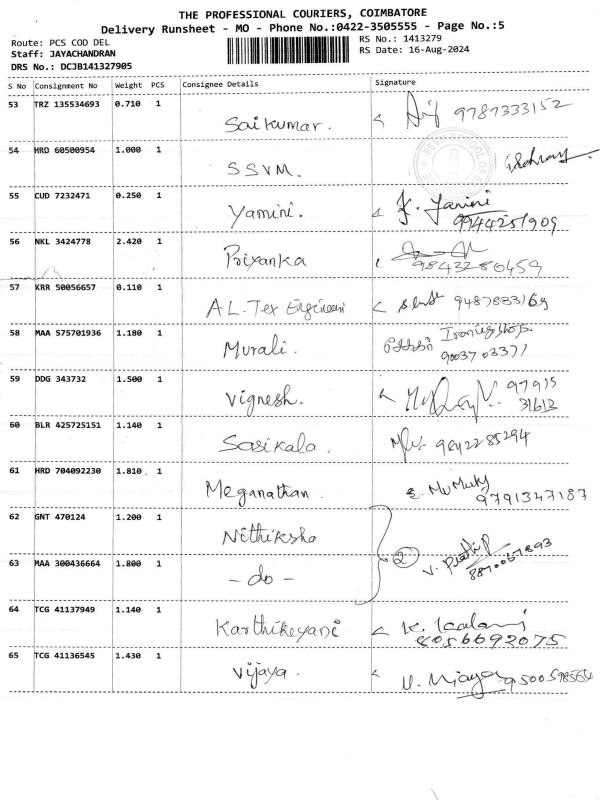 THE PROFESSIONAL COURIERS, COIMBATORE
Delivery Runsheet - MO - Phone No.:0422-3505555 - Page No.:5
Route: PCS COD DEL
RS No.: 1413279
Staff: JAYACHANDRAN
RS Date: 16-Aug-2024
DRS No.: DCJB141327905
S No Consignment No Weight PCS Consignee Details Signature
53 TRZ 135534693 0.710 1 Saikumar. 9787333152
54 HRD 60500954 1.000 1 SSVM.
55 CUD 7232471 0.250 1 Yamini. Y. Yamini
9944251909
56 NKL 3424778 2.420 1 Priyanka
9843280459
57 KRR 50056657 0.110 1 A L. Tex 9487883169
58 MAA 575701936 1.180 1 Murali.
9003703377
59 DDG 343732 1.500 1 Vignesh. 97915
31613
60 BLR 425725151 1.140 1 Sasikala. 9842285294
61 HRD 704092230 1.810 1 Meganathan.
9791347187
62 GNT 470124 1.200 1 Nithiksha
2 V.
8870067893
63 MAA 300436664 1.800 1 - do -
64 TCG 41137949 1.140 1 Karthikeyani K.
8056692075
65 TCG 41136545 1.430 1 Vijaya. 9500598564